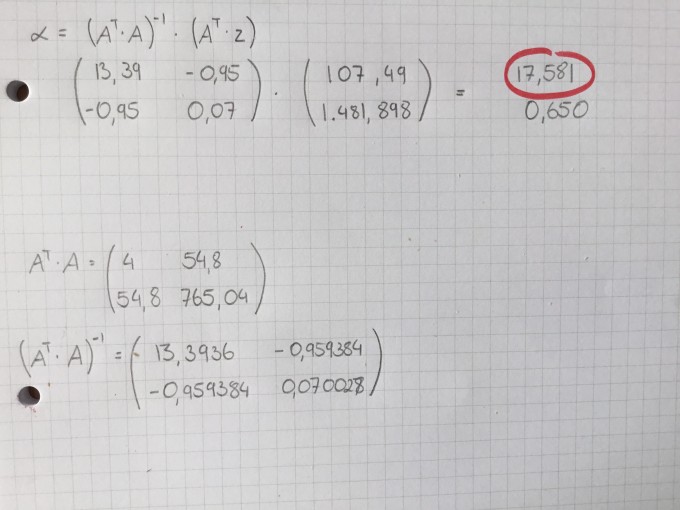 α = (Aᵀ · A)⁻¹ · (Aᵀ · z)
( 13,39 -0,95 ) · ( 107,49 ) = 17,581
( -0,95 0,07 ) ( 1.481,898 ) 0,650
Aᵀ · A = ( 4 54,8 )
( 54,8 765,04 )
(Aᵀ · A)⁻¹ = ( 13,3936 -0,959384 )
( -0,959384 0,070028 )